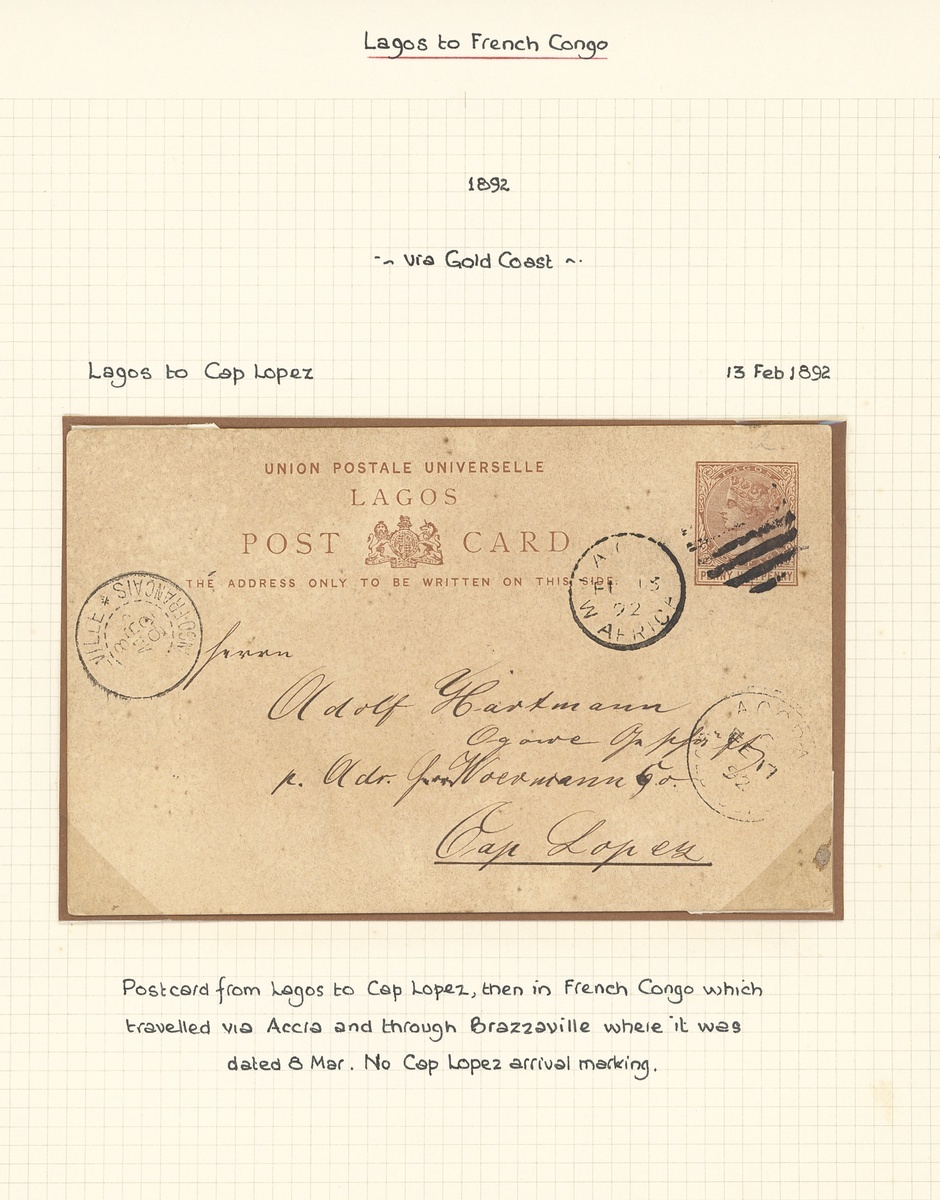 Lagos to French Congo
1892
~ via Gold Coast ~
Lagos to Cap Lopez
13 Feb 1892
UNION POSTALE UNIVERSELLE
LAGOS
POST CARD
THE ADDRESS ONLY TO BE WRITTEN ON THIS SIDE.
LAGOS
PENNY
13
92
W AFRICA
VILLE * FRANCAIS
Herrn
Adolf Hartmann
Ogowe
p. Adr. Herrn Woermann Co.
Cap Lopez
ACCRA
FE 17
92
Postcard from Lagos to Cap Lopez, then in French Congo which
travelled via Accra and through Brazzaville where it was
dated 8 Mar. No Cap Lopez arrival marking.